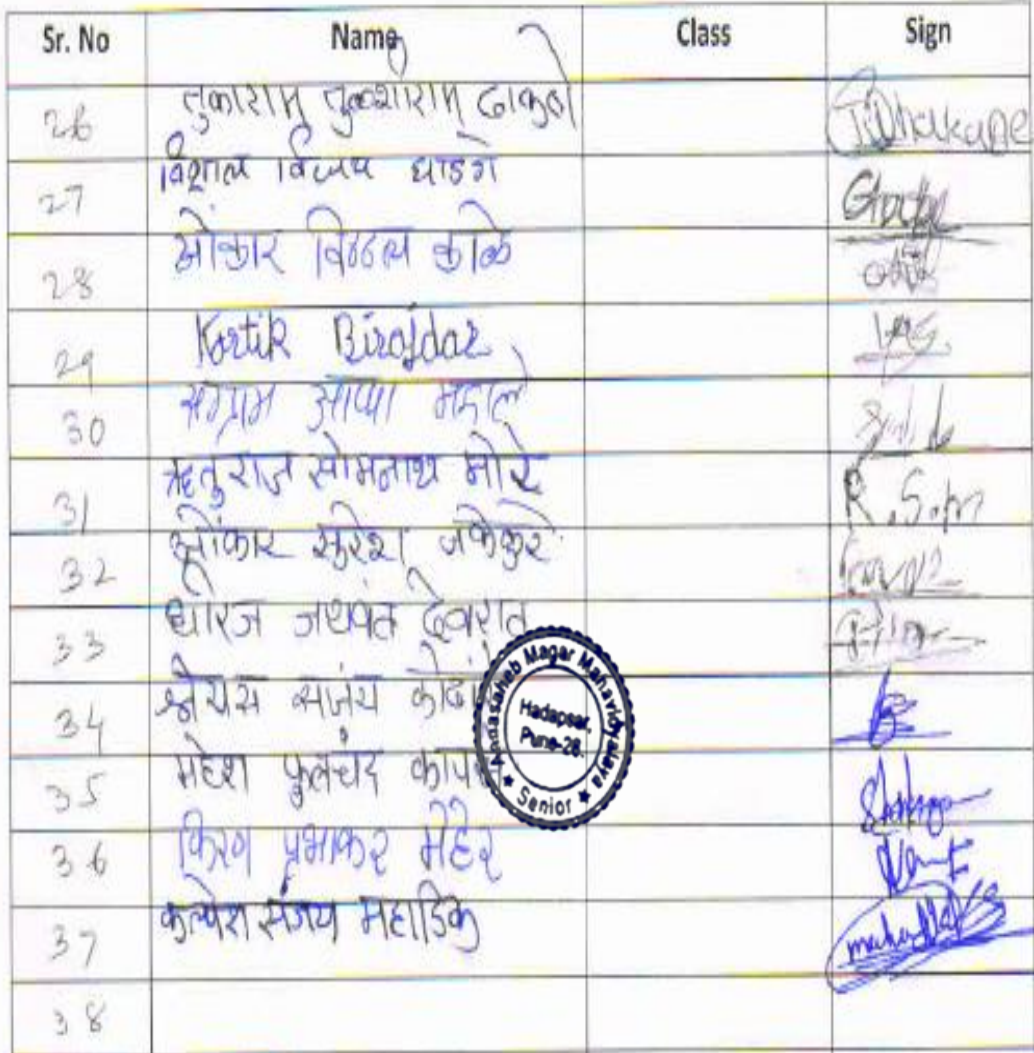 Sr. No Name Class Sign
26 तुकाराम तुळशीराम ढाकणे T.Dhakane
27 विशाल विजय घाडगे
28 ओंकार विठ्ठल काळे
29 Kartik Birajdar
30 संग्राम आप्पा
31 ऋतुराज सोमनाथ मोरे R.Som
32 ओंकार सुरेश जकेकुरे
33 धीरज जयवंत देवरात
34 श्रेयस संजय
35 महेश फुलचंद
36 किरण प्रभाकर मेहेर
37 कल्पेश संजय महाडिक mahadik
38
Annasaheb Magar Mahavidyalaya
Hadapsar,
Pune-28.
★ Senior ★